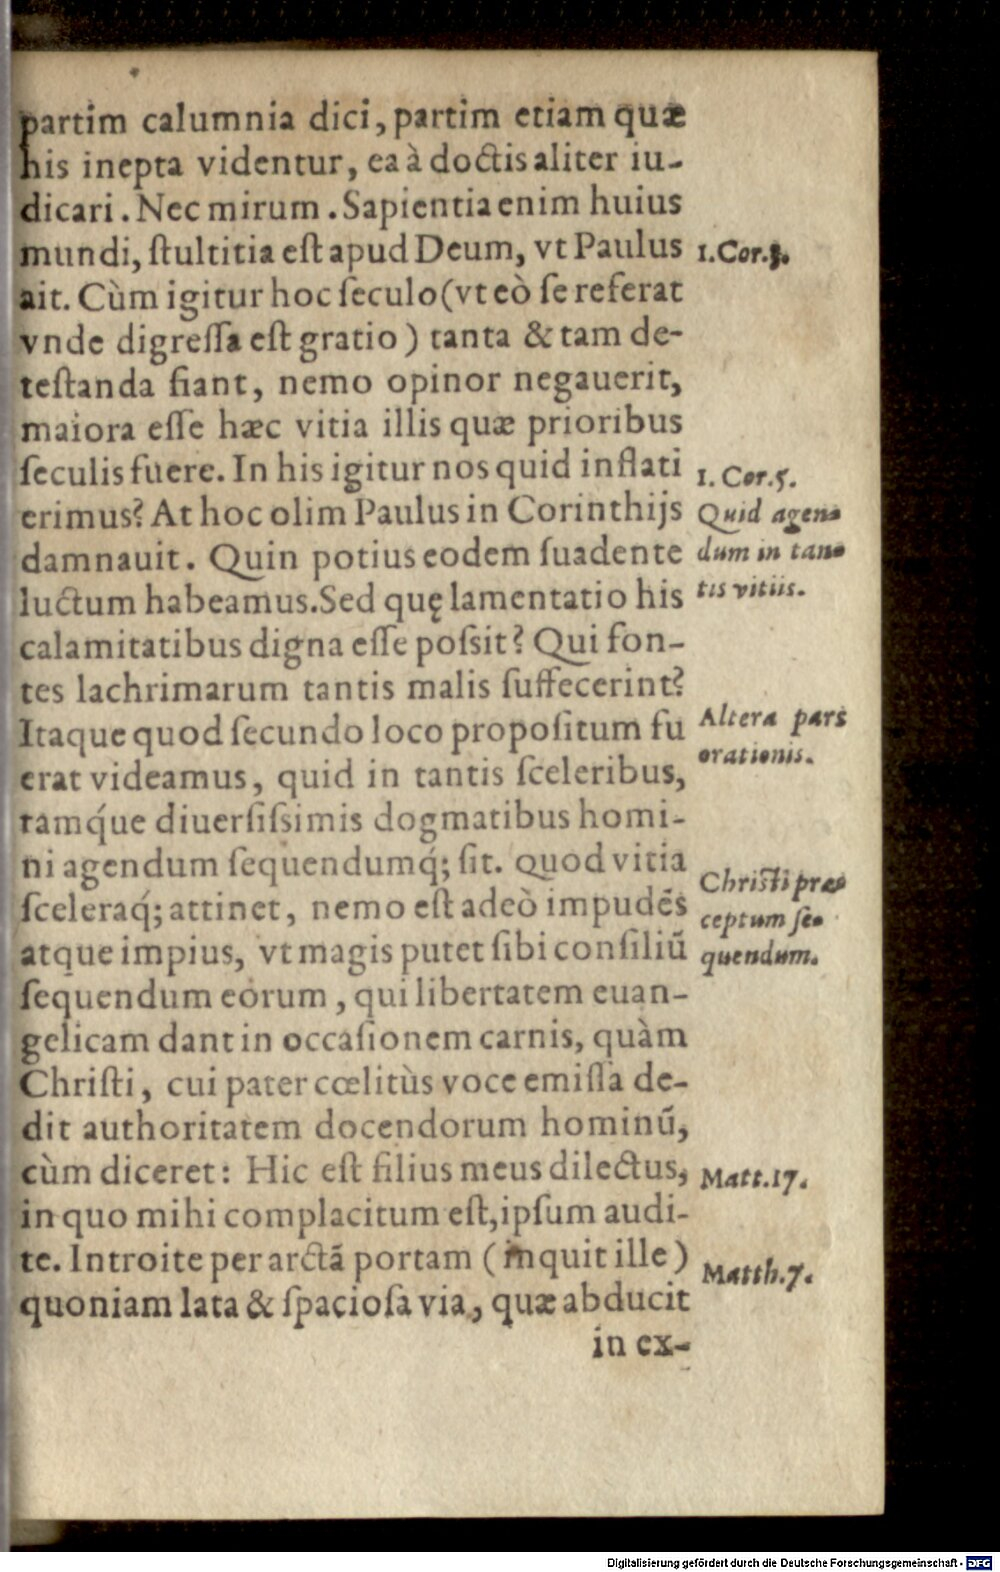 partim calumnia dici, partim etiam quæ
his inepta videntur, ea à doctis aliter iu-
dicari. Nec mirum. Sapientia enim huius
mundi, ſtultitia eſt apud Deum, vt Paulus
ait. Cùm igitur hoc ſeculo (vt eò ſe referat
vnde digreſſa eſt gratio) tanta & tam de-
teſtanda fiant, nemo opinor negauerit,
maiora eſſe hæc vitia illis quæ prioribus
ſeculis fuere. In his igitur nos quid inflati
erimus? At hoc olim Paulus in Corinthijs
damnauit. Quin potius eodem ſuadente
luctum habeamus. Sed quę lamentatio his
calamitatibus digna eſſe poſsit? Qui fon-
tes lachrimarum tantis malis ſuffecerint?
Itaque quod ſecundo loco propoſitum fu
erat videamus, quid in tantis ſceleribus,
tamq́ue diuerſiſsimis dogmatibus homi-
ni agendum ſequendumq́; ſit. Quod vitia
ſceleraq́; attinet, nemo eſt adeò impudẽs
atque impius, vt magis putet ſibi conſiliũ
ſequendum eorum, qui libertatem euan-
gelicam dant in occaſionem carnis, quàm
Chriſti, cui pater cœlitùs voce emiſſa de-
dit authoritatem docendorum hominũ,
cùm diceret: Hic eſt filius meus dilectus,
in quo mihi complacitum eſt, ipſum audi-
te. Introite per arctã portam (inquit ille)
quoniam lata & ſpacioſa via, quæ abducit
in ex-
1. Cor. 3.
1. Cor. 5.
Quid agen-
dum in tan-
tis vitiis.
Altera pars
orationis.
Chriſti præ-
ceptum ſe-
quendum.
Matt. 17.
Matth. 7.
Digitalisierung gefördert durch die Deutsche Forschungsgemeinschaft - DFG